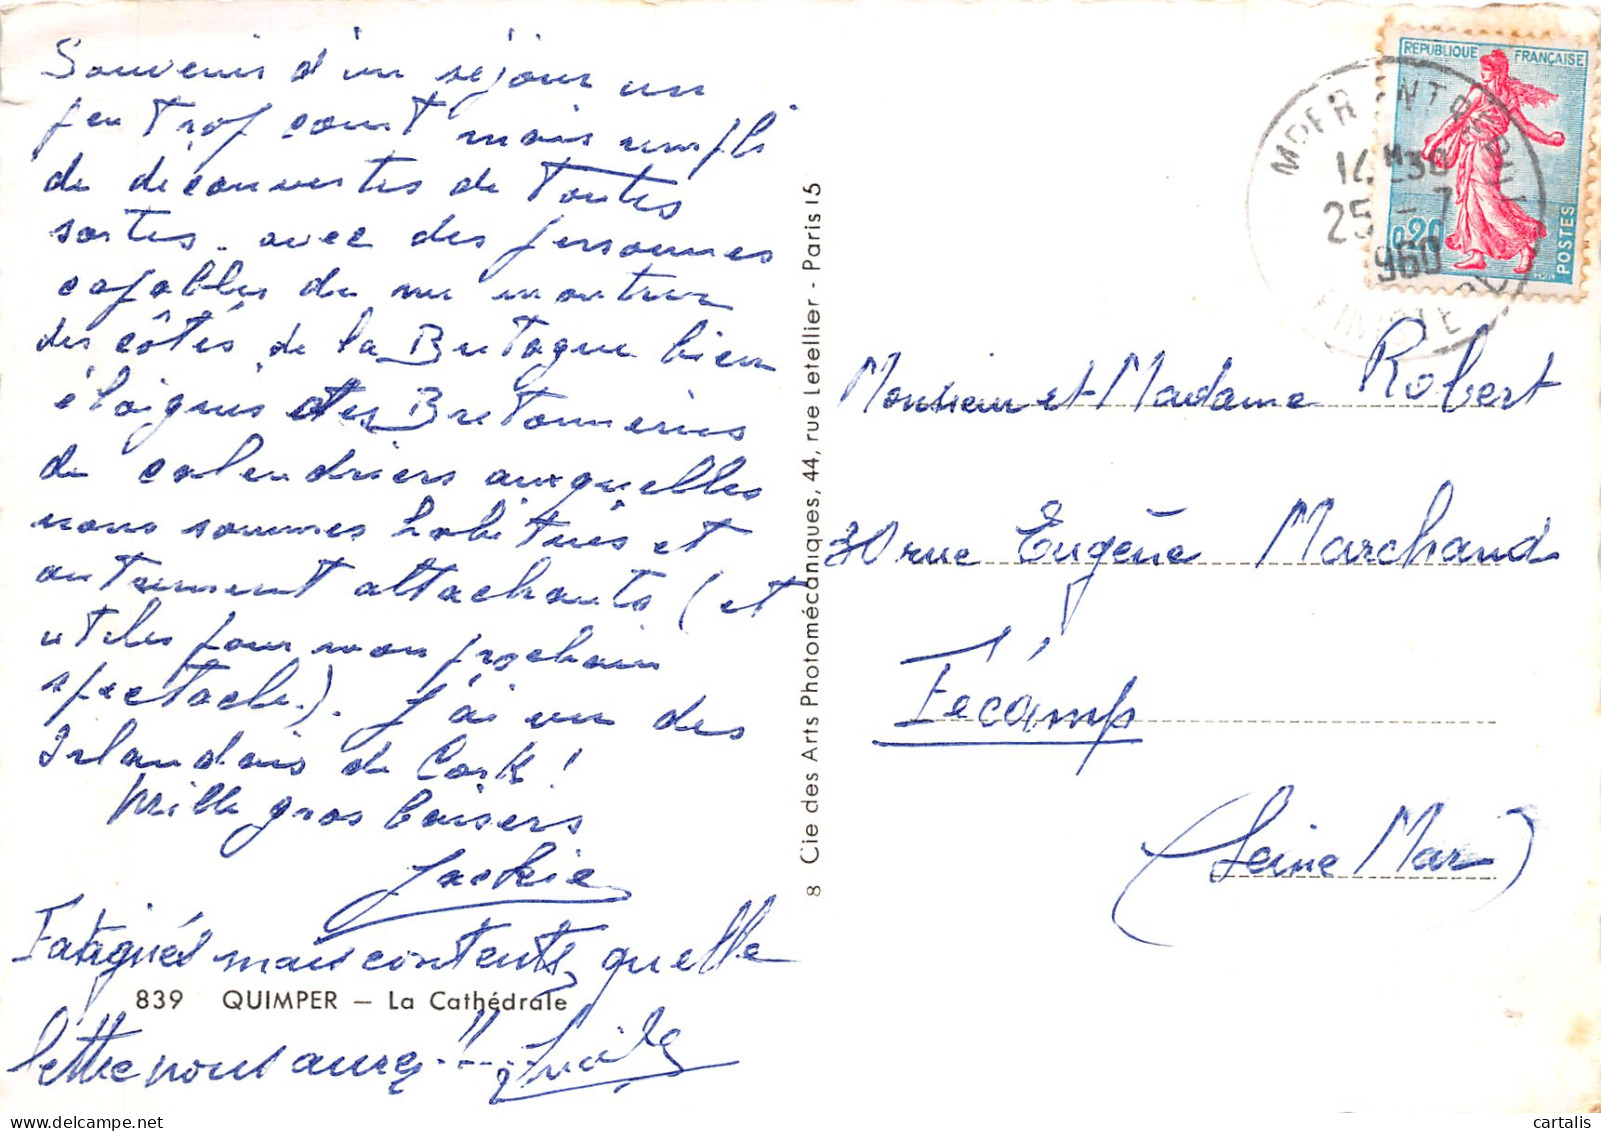 Souvenir d'un séjour un
peu trop court mais rempli
de découvertes de toutes
sortes - avec des personnes
capables de me montrer
des côtés de la Bretagne bien
éloignés des Bretonneries
de calendriers auxquelles
nous sommes habitués et
autrement attachants (et
utiles pour mon prochain
spectacle). J'ai vu des
Irlandais de Cork !
Mille gros baisers
Jackie
Fatigués mais contents, quelle
839 QUIMPER — La Cathédrale
lettre vous aurez !!
8 Cie des Arts Photomécaniques, 44, rue Letellier - Paris 15
REPUBLIQUE FRANÇAISE
0,20
POSTES
14 H 30
25 - 7
960
Monsieur et Madame Robert
30 rue Eugène Marchand
Fécamp
(Seine Mar)
cartalis
www.delcampe.net